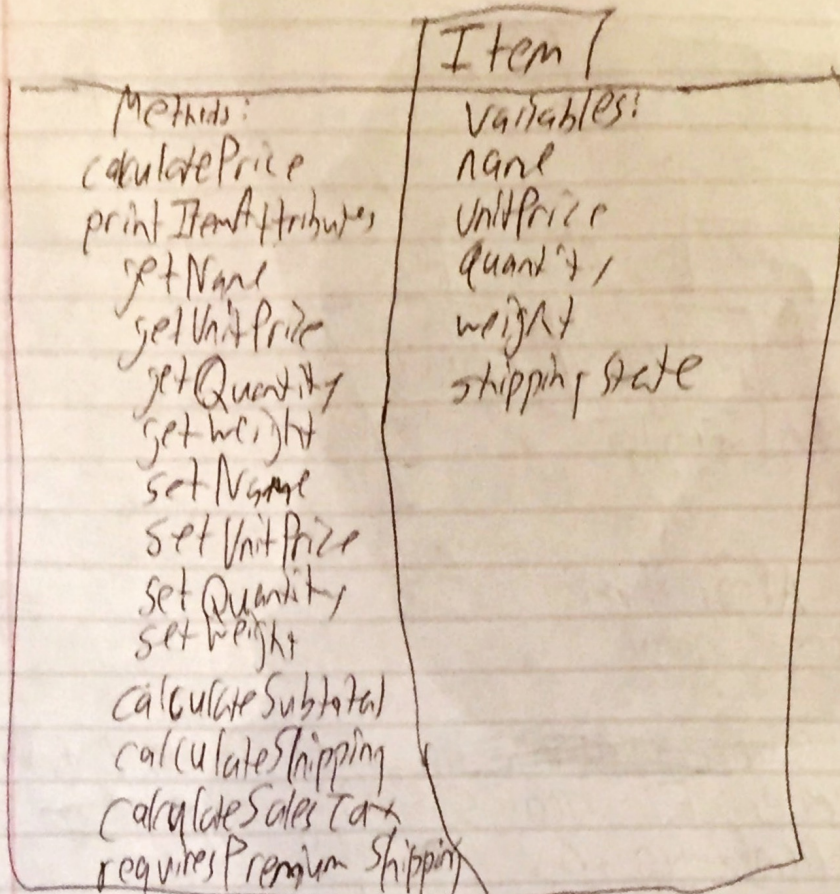 Item
Methods:
calculatePrice
printItemAttributes
getName
getUnitPrice
getQuantity
getWeight
setName
setUnitPrice
setQuantity
setWeight
calculateSubtotal
calculateShipping
calculateSalesTax
requiresPremiumShipping
Variables:
name
unitPrice
quantity
weight
shippingState